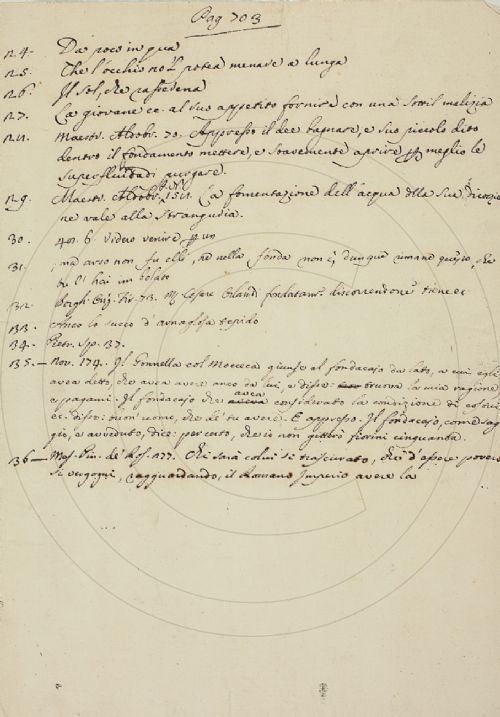 Pag 703
124. Da poco in qua
125. Che l'occhio no 'l potea menare a lunga
126. Il sol, che rasserena
127. La giovane ec. al suo appetito fornire con una sottil malizia
Maestr. Aldobr. 70. Appresso il dee bagnare, e suo piccolo dito
dentro il fondamento mettere, e soavemente aprire, meglio le
superfluitadi purgare.
129. Maestr. Aldobr. La fomentazione dell'acqua della sua
ne vale alla stranguria.
130. 6. Video venire un
131. ma arso non fu elli, che nella fonda non è; dunque umano questo, che
tu l' hai
132. Borgh. Orig. Fir. 73. Cesare discorrendone tiene ec
133. succo d'arnaglosa tepido
134. Petr. Sp. 37.
135. — Nov. 174. Il Gonnella col Mocceca giunse al fondacajo da lato, a cui egli
avea detto, che avea avere anco da lui, e disse: truova la mia ragione
e pagami. Il fondacajo che avea considerato la condizione di costui
ec. disse: buon uomo, che de' tu avere. E appresso. Il fondacajo, come sag
gio, e avveduto, dice: per certo, che io non guarò fiorini cinquanta.
136 — Mos. Piu. de' Ros. 277. Chi sarà colui sì trascurato, che d'essere povero
si vergogni, ragguardando, il Romano Imperio avere la